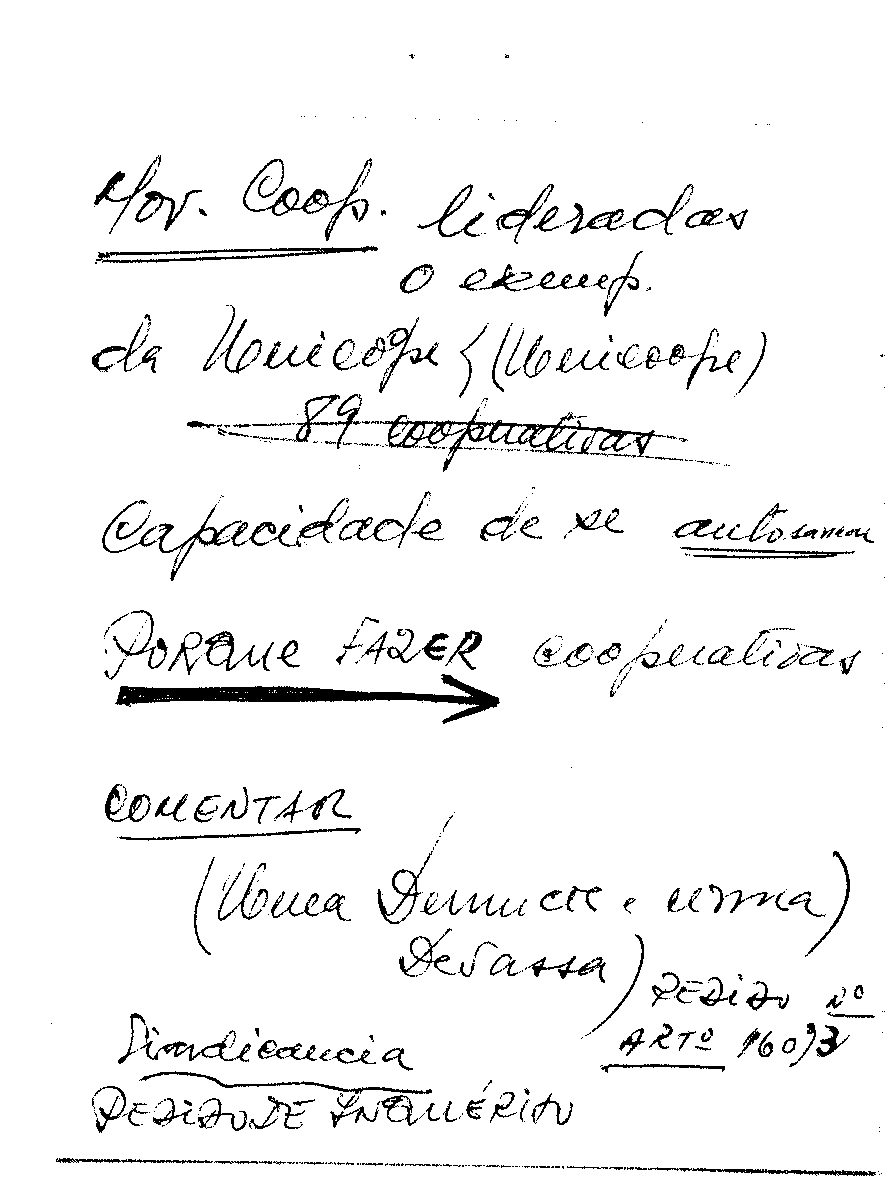 Mov. Coop. lideradas
o exemp.
da Unicope (Unicoope)
89 cooperativas
Capacidade de se
PORQUE FAZER cooperativas
COMENTAR
(Uma Denuncia e uma)
Devassa)
PEDIDO Nº
Sindicancia
ARTº
PEDIDO DE INQUÉRITO